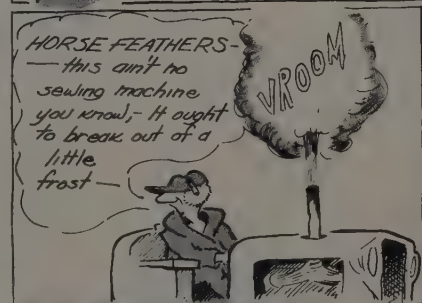 HORSE FEATHERS-
— this ain't no
sewing machine
you know,- It ought
to break out of a
little
frost —
VROOM